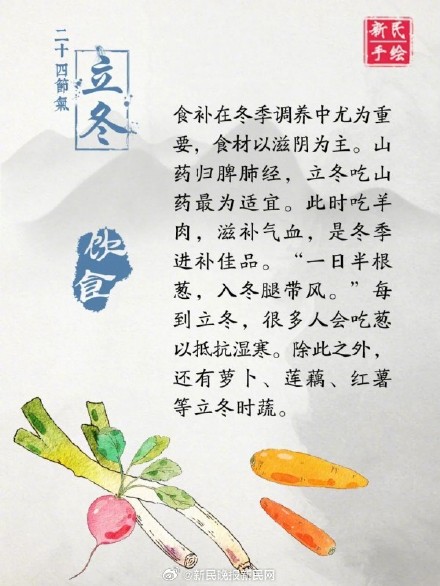 二十四節氣
立冬
新民
手绘
饮食
食补在冬季调养中尤为重
要，食材以滋阴为主。山
药归脾肺经，立冬吃山
药最为适宜。此时吃羊
肉，滋补气血，是冬季
进补佳品。“一日半根
葱，入冬腿带风。”每
到立冬，很多人会吃葱
以抵抗湿寒。除此之外，
还有萝卜、莲藕、红薯
等立冬时蔬。
@新民晚报新民网